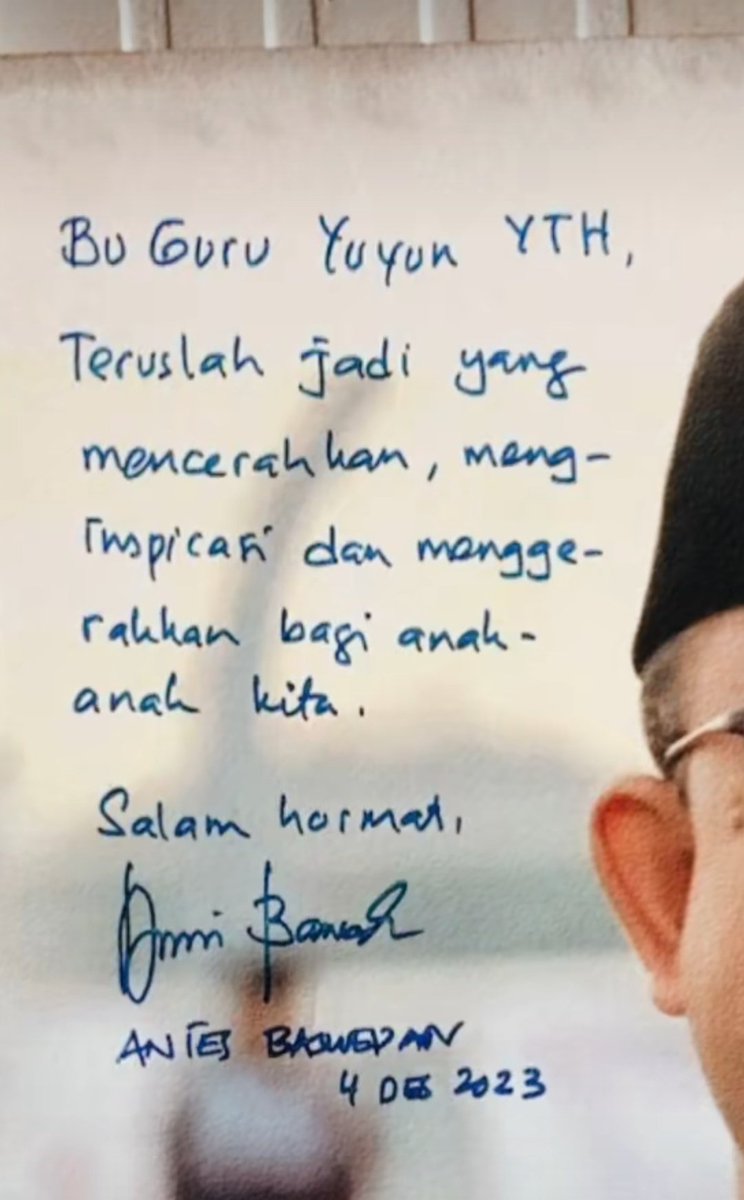 Bu Guru Yuyun YTH,
Teruslah jadi yang
mencerahkan, meng-
inspirasi dan mengge-
rakkan bagi anak-
anak kita.
Salam hormat,
Anies Baswedan
ANIES BASWEDAN
4 DES 2023